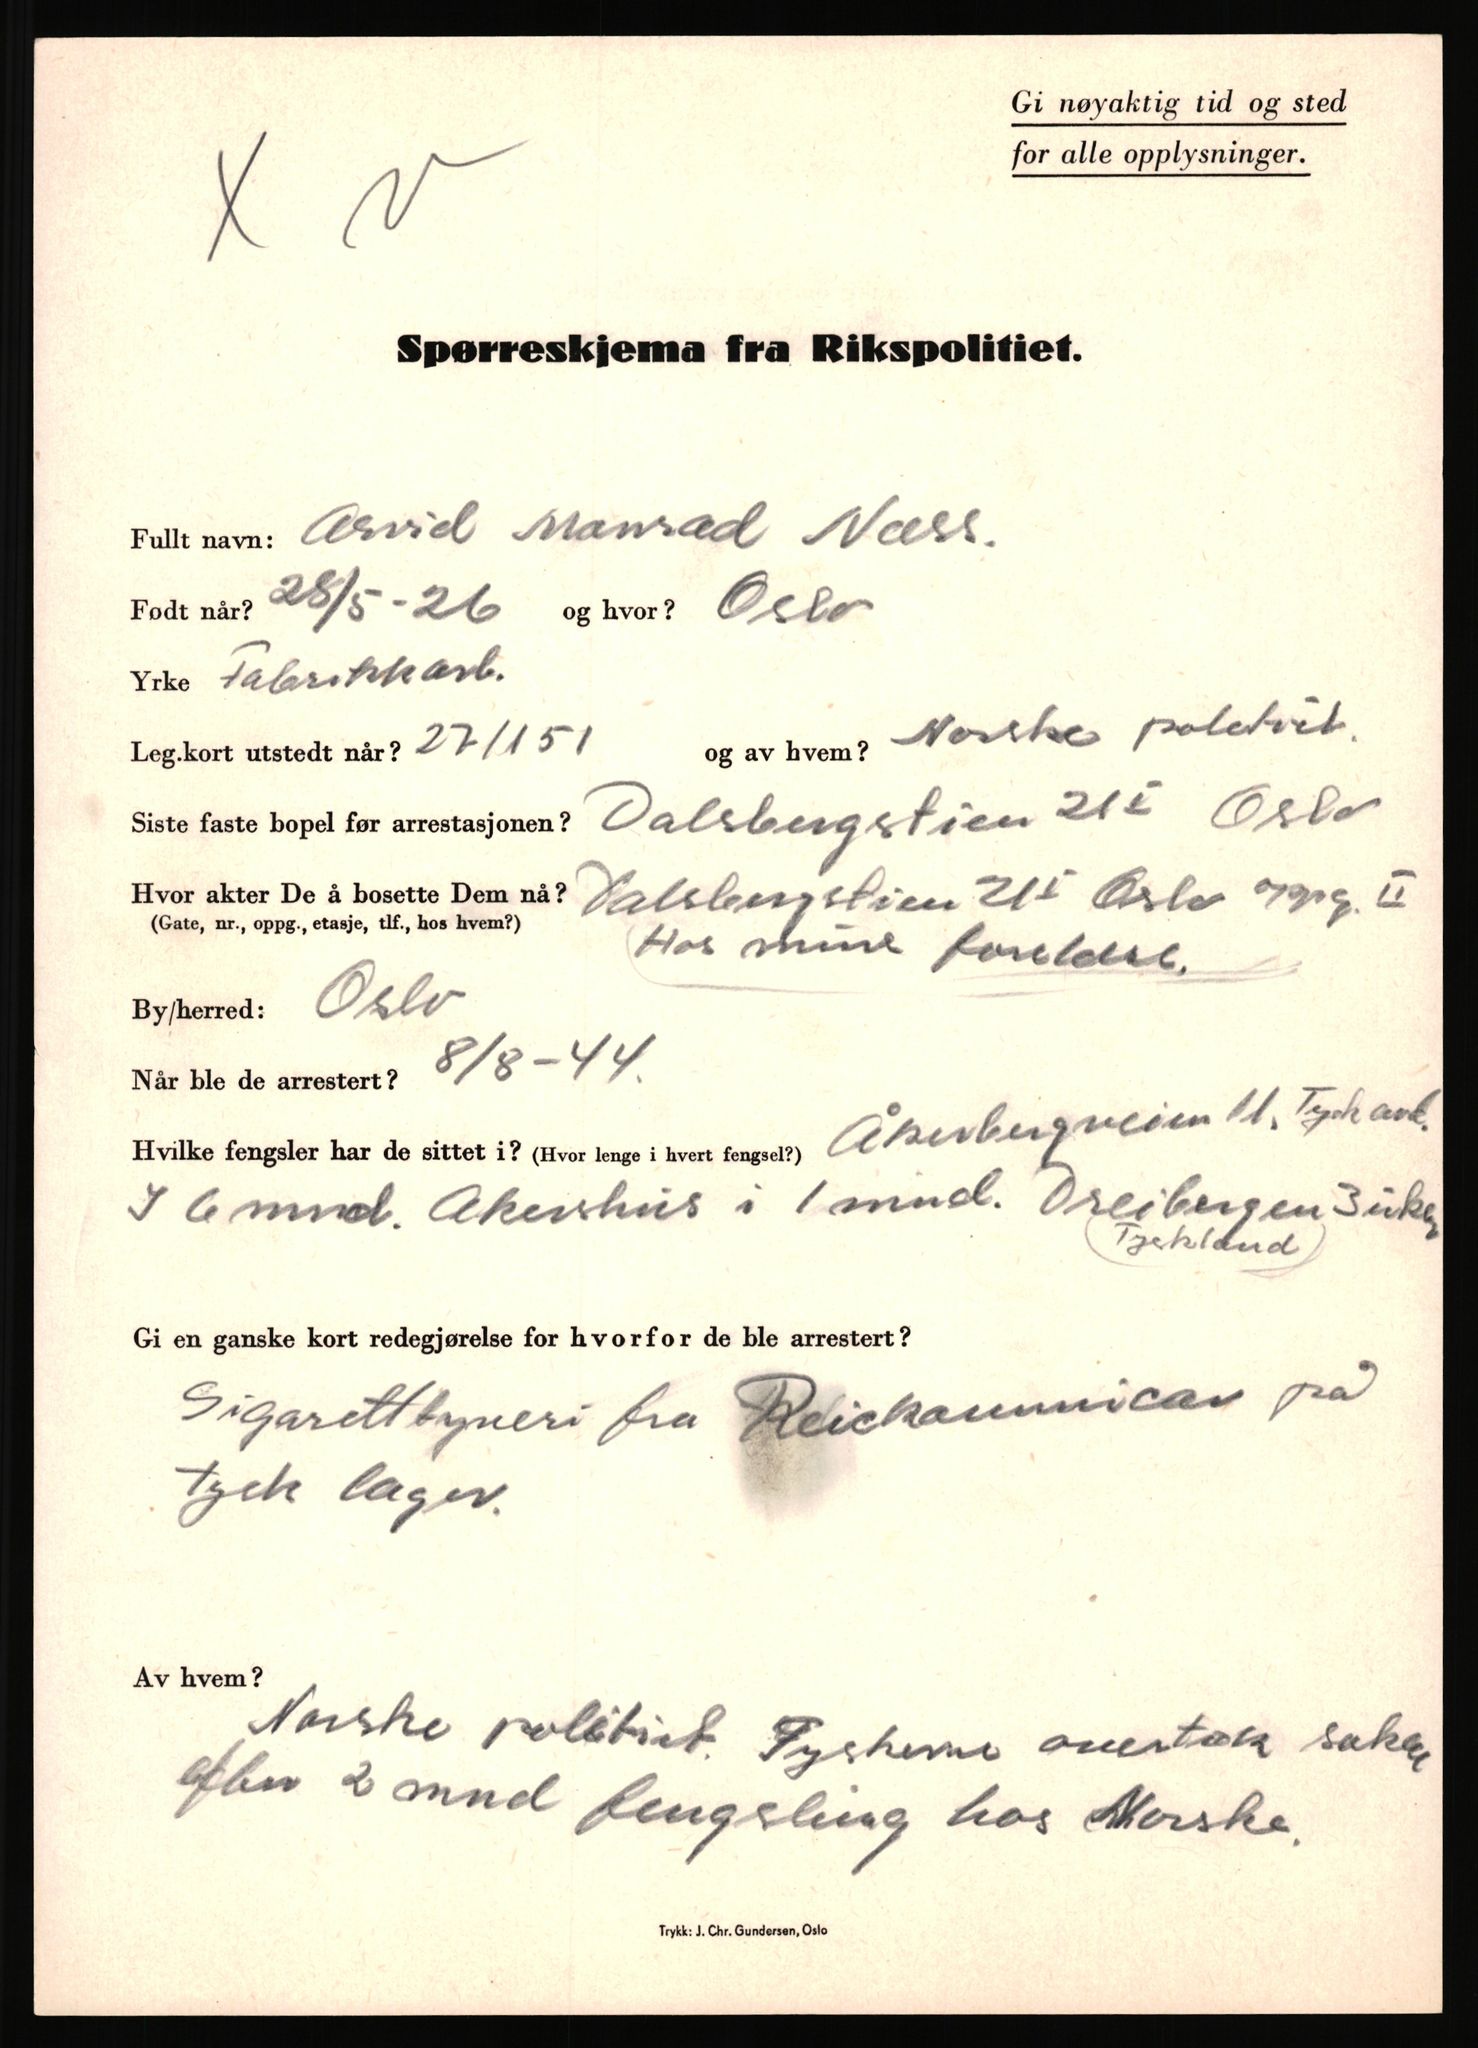 Gi nøyaktig tid og sted
for alle opplysninger.
X V
Spørreskjema fra Rikspolitiet.
Fullt navn: Arvid Monrad Næss.
Født når? 28/5-26 og hvor? Oslo
Yrke Fabrikkarb.
Leg.kort utstedt når? 27/151 og av hvem? Norske politiet.
Siste faste bopel før arrestasjonen? Dalsbergstien 21 I Oslo
Hvor akter De å bosette Dem nå? Dalsbergstien 21 I Oslo oppg. II
(Gate, nr., oppg., etasje, tlf., hos hvem?) Hos mine foreldre.
By/herred: Oslo
Når ble de arrestert? 8/8-44.
Hvilke fengsler har de sittet i? (Hvor lenge i hvert fengsel?) Åkerbergveien 11. Tysk avd.
I 6 mnd. Akershus i 1 mnd. Dreibergen 3 uker
(Tyskland)
Gi en ganske kort redegjørelse for hvorfor de ble arrestert?
Sigarettyveri fra på
tysk lager.
Av hvem?
Norske politiet. Tyskerne overtok saken
efter 2 mnd fengsling hos Norske.
Trykk: J. Chr. Gundersen, Oslo